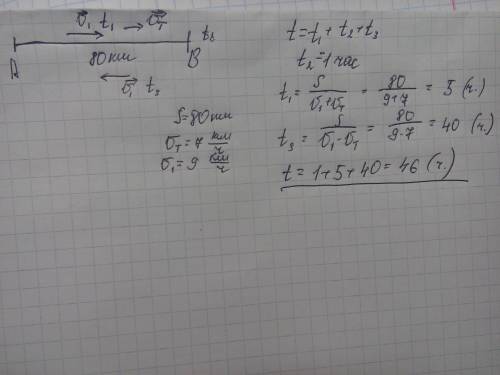 v⃗₁ t₁ → v⃗т t₂
80 км
A B
v⃗₁ t₃
S=80 км
vт = 7 км/ч
v₁ = 9 км/ч
t = t₁ + t₂ + t₃
t₂ = 1 час
t₁ = S/(v₁+vт) = 80/(9+7) = 5 (ч.)
t₃ = S/(v₁-vт) = 80/(9-7) = 40 (ч.)
t = 1+5+40 = 46 (ч.)